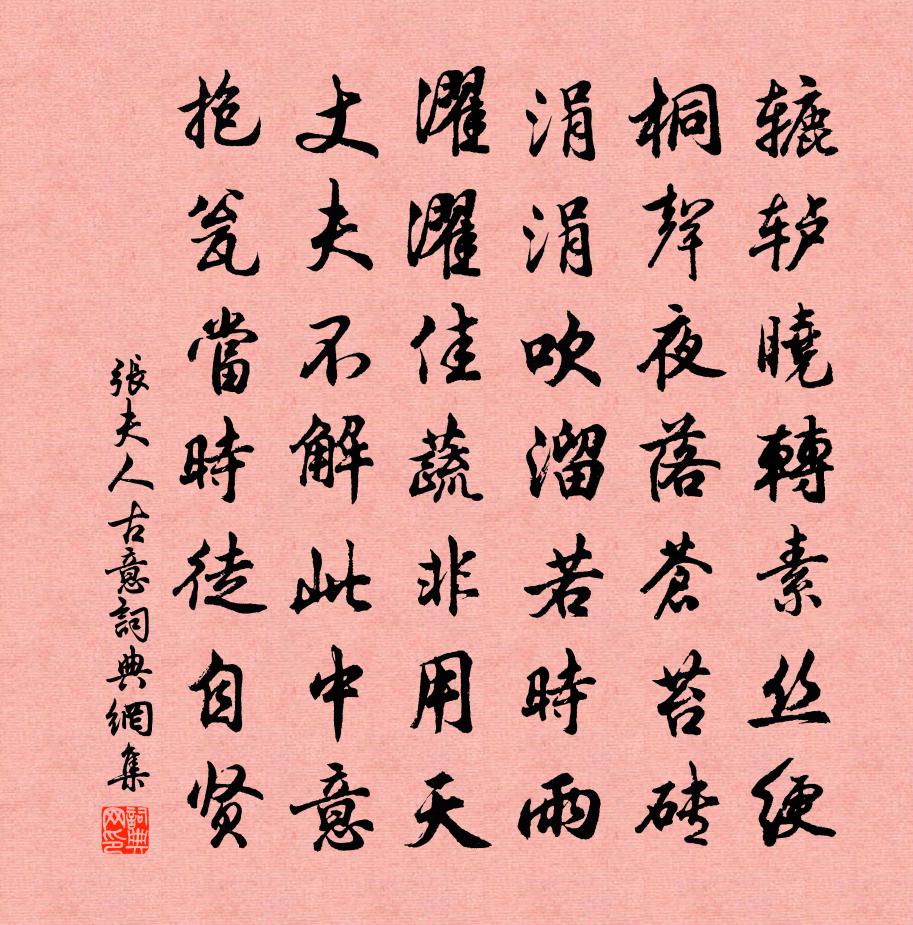 辘轳曉轉素丝绠
桐聲夜落蒼苔砖
涓涓吹溜若時雨
濯濯佳蔬非用天
丈夫不解此中意
抱瓮當時徒自贤
張夫人古意詞典網集
詞典网印